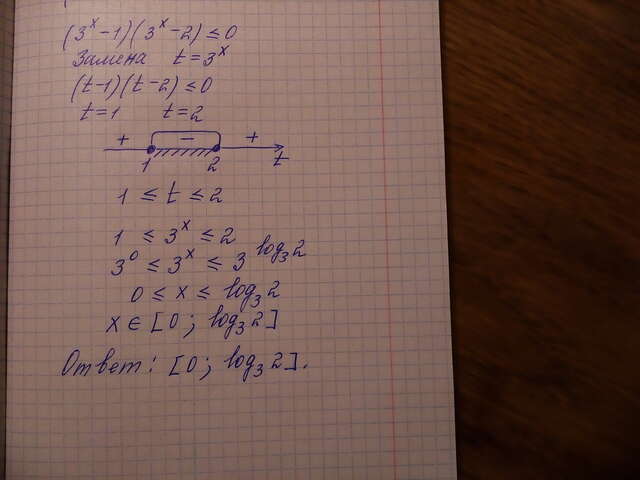 (3^x-1)(3^x-2)≤0
Замена t=3^x
(t-1)(t-2)≤0
t=1 t=2
+ - +
1 2 t
1 ≤ t ≤ 2
1 ≤ 3^x ≤ 2
3^0 ≤ 3^x ≤ 3^log_3 2
0 ≤ x ≤ log_3 2
x ∈ [0; log_3 2]
Ответ: [0; log_3 2].